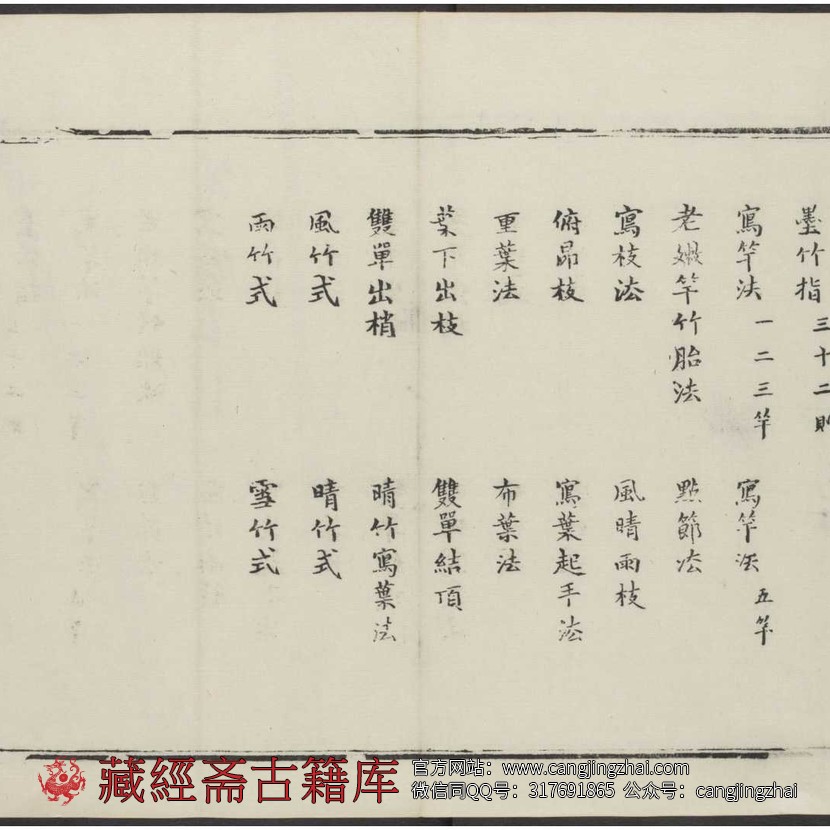 墨竹指 三十二則
寫竿法 一二三竿 寫竿法 五竿
老嫩竿竹胎法 點節法
寫枝法 風晴雨枝
俯昂枝 寫葉起手法
重葉法 布葉法
葉下出枝 雙單結頂
雙單出梢 晴竹寫葉法
風竹式 晴竹式
雨竹式 雪竹式
藏經斋古籍库
官方网站：www.cangjingzhai.com
微信同QQ号：317691865 公众号：cangjingzhai